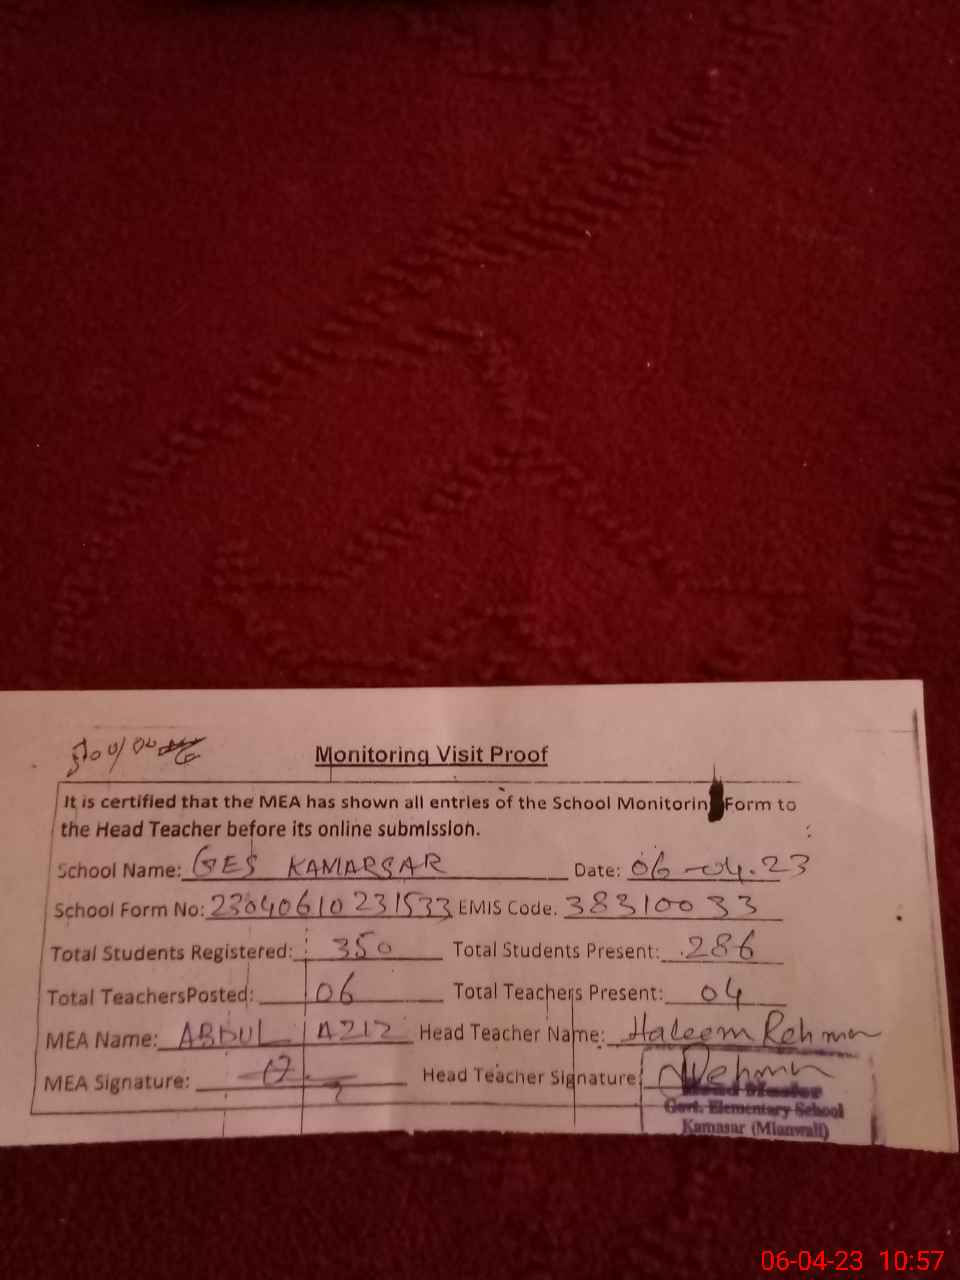 Monitoring Visit Proof
It is certified that the MEA has shown all entries of the School Monitoring Form to
the Head Teacher before its online submission.
School Name: GES KAMARSAR Date: 06-04.23
School Form No: 23040610231533 EMIS Code. 38310033
Total Students Registered: 350 Total Students Present: 286
Total TeachersPosted: 06 Total Teachers Present: 04
MEA Name: ABDUL AZIZ Head Teacher Name: Haleem Rehman
MEA Signature: Head Teacher Signature: Rehman
Head Master
Govt. Elementary School
Kamasar (Mianwali)
06-04-23 10:57